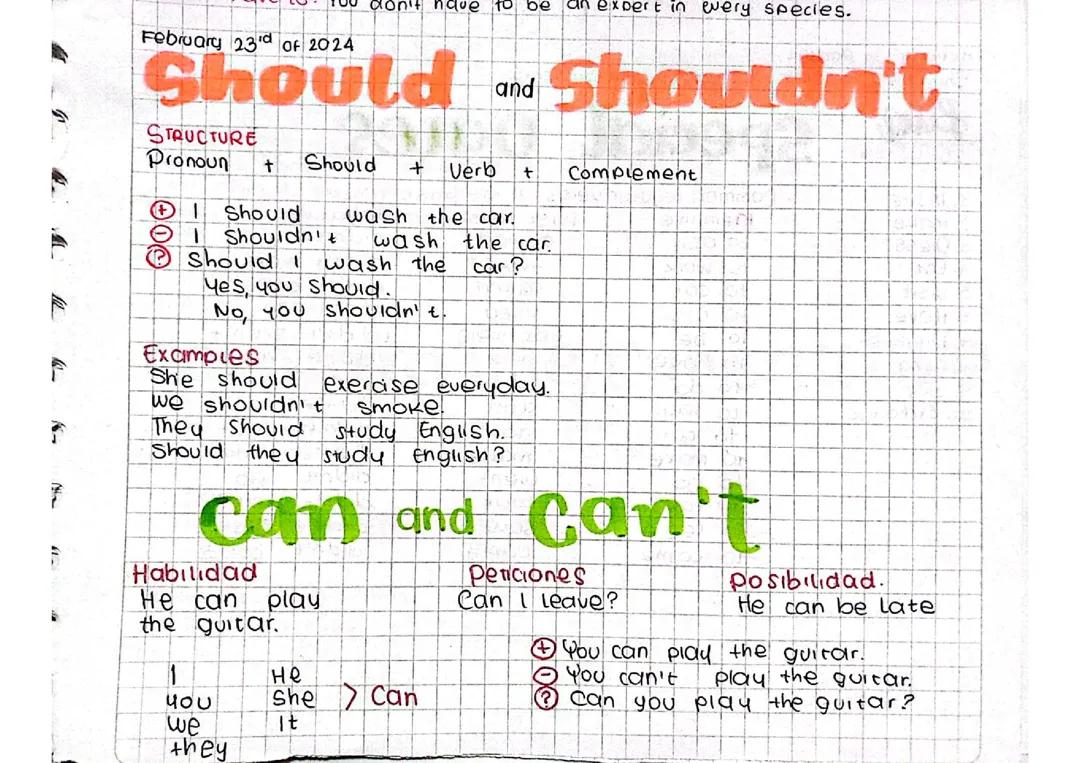 You don't have to be an expert in every species.
February 23rd of 2024
Should and Shouldn't
STRUCTURE
Pronoun + Should + Verb + Complement
+ I Should wash the car.
- I Shouldn't wash the car.
? Should I wash the car?
Yes, you should.
No, you shouldn't.
Examples
She should exercise everyday.
We shouldn't smoke.
They should study English.
Should they study English?
Can and Can't
Habilidad Peticiones Posibilidad.
He can play Can I leave? He can be late
the guitar.
+ You can play the guitar.
I He - You can't play the guitar.
you She > Can ? Can you play the guitar?
we It
they